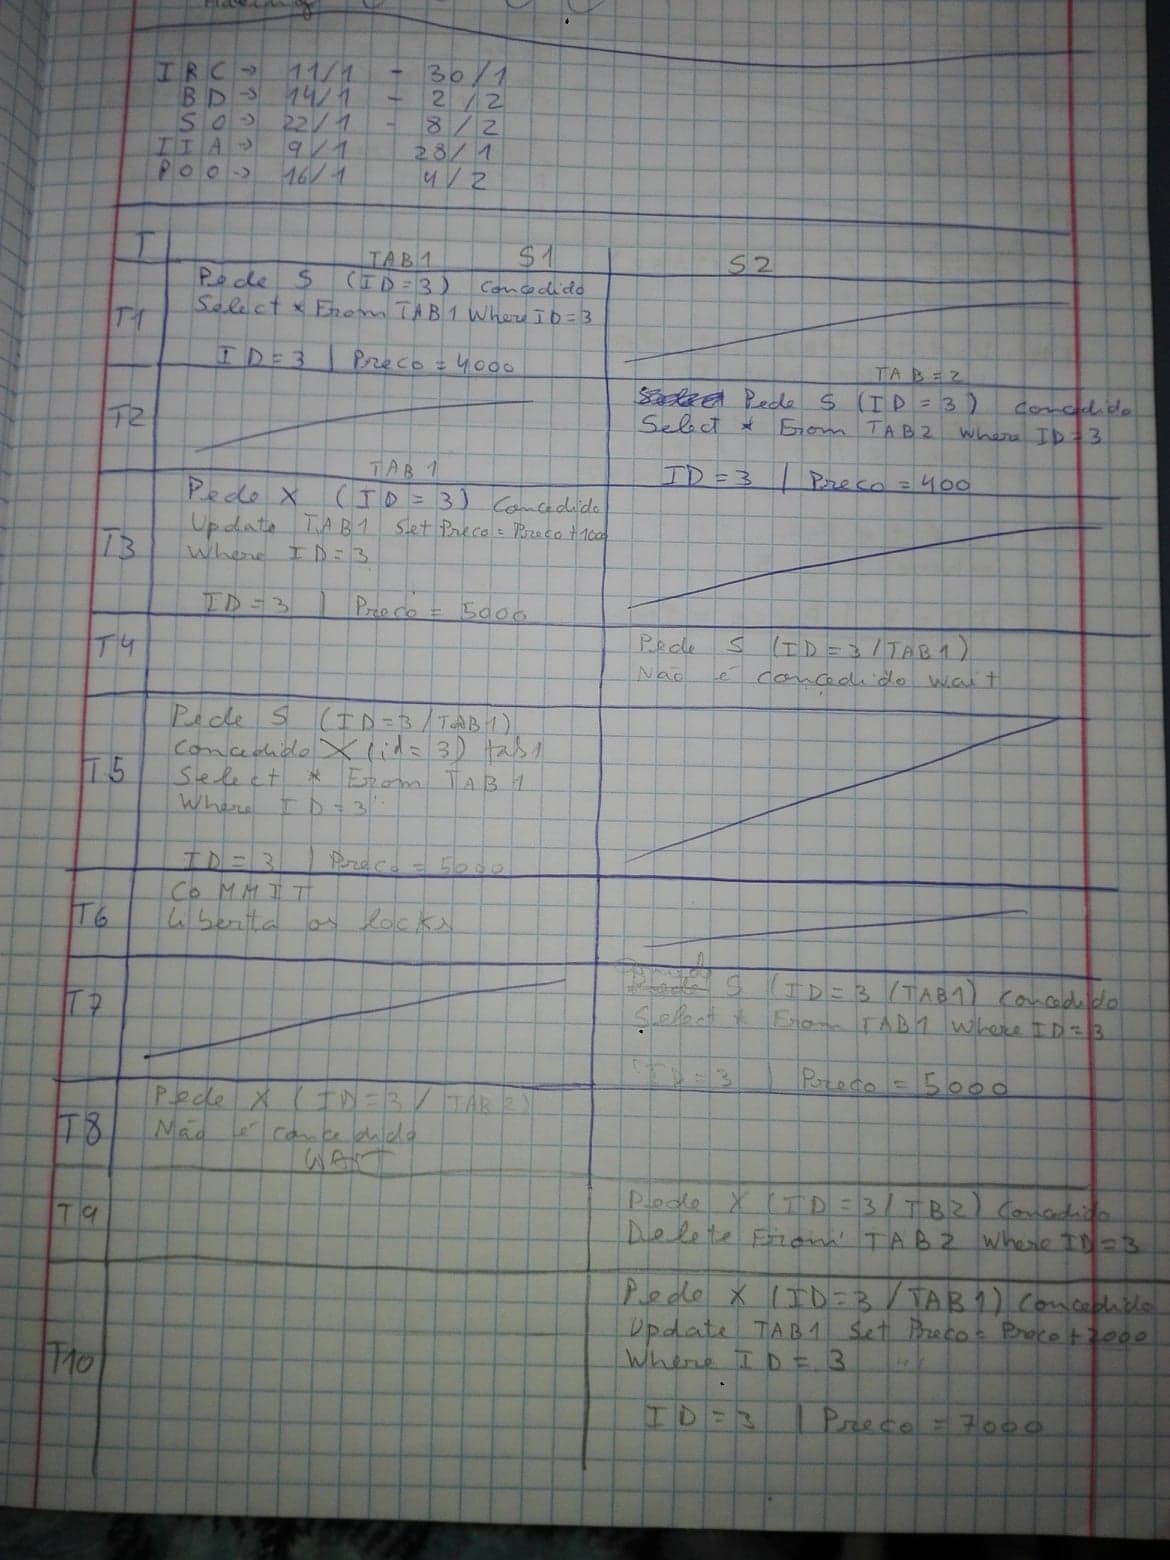 IRC → 11/1 - 30/1
BD → 14/1 - 2/2
SO → 22/1 - 8/2
IIA → 9/1 28/1
POO → 16/1 4/2
T TAB1 S1 S2
T1
Pede S (ID=3) concedido
Select * From TAB1 Where ID=3
ID=3 | Preco = 4000
TAB=2
T2
Pede S (ID=3) concedido
Select * From TAB2 where ID=3
ID=3 | Preco = 400
TAB1
T3
Pede X (ID=3) Concedido
Update TAB1 Set Preco = Preco +
Where ID=3
ID=3 | Preco = 5000
T4
Pede S (ID=3/TAB1)
Não é concedido wait
T5
Pede S (ID=3/TAB1)
Concedido X (id=3) tab1
Select * From TAB1
Where ID=3
ID=3 | Preco = 5000
T6
COMMIT
liberta os locks
T7
S (ID=3/TAB1) Concedido
Select * From TAB1 Where ID=3
ID=3 | Preco = 5000
T8
Pede X (ID=3/TAB2)
Não é concedido
WAIT
T9
Pede X (ID=3/TB2) Concedido
Delete From TAB2 where ID=3
T10
Pede X (ID=3/TAB1) Concedido
Update TAB1 Set Preco = Preco +2000
Where ID=3
ID=3 | Preco = 7000